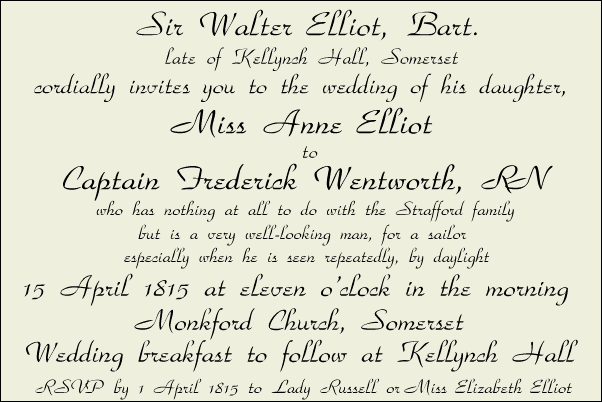 Sir Walter Elliot, Bart.
late of Kellynch Hall, Somerset
cordially invites you to the wedding of his daughter,
Miss Anne Elliot
to
Captain Frederick Wentworth, RN
who has nothing at all to do with the Strafford family
but is a very well-looking man, for a sailor
especially when he is seen repeatedly, by daylight
15 April 1815 at eleven o'clock in the morning
Monkford Church, Somerset
Wedding breakfast to follow at Kellynch Hall
RSVP by 1 April 1815 to Lady Russell or Miss Elizabeth Elliot